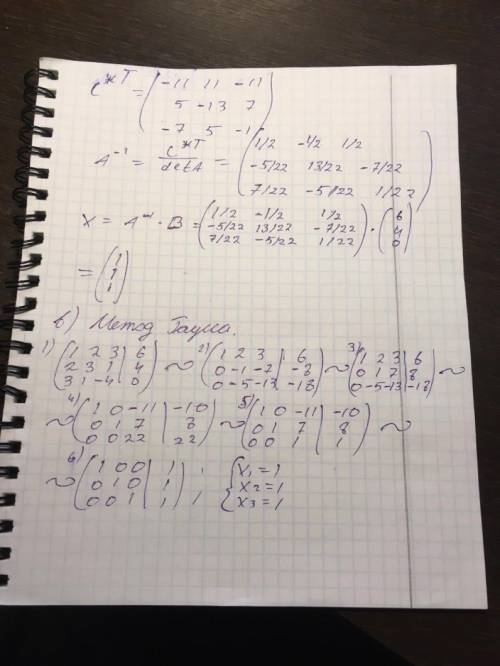 C*T = ( -11 11 -11
5 -13 7
-7 5 -1 )
A⁻¹ = C*T / detA = ( 1/2 -1/2 1/2
-5/22 13/22 -7/22
7/22 -5/22 1/22 )
X = A⁻¹ · B = ( 1/2 -1/2 1/2
-5/22 13/22 -7/22
7/22 -5/22 1/22 ) · ( 6
4
0 )
= ( 1
1
1 )
в) Метод Гаусса.
1) ( 1 2 3 | 6
2 3 1 | 4
3 1 -4 | 0 ) ~
2) ( 1 2 3 | 6
0 -1 -7 | -8
0 -5 -13 | -18 ) ~
3) ( 1 2 3 | 6
0 1 7 | 8
0 -5 -13 | -18 ) ~
4) ~ ( 1 0 -11 | -10
0 1 7 | 8
0 0 22 | 22 ) ~
5) ( 1 0 -11 | -10
0 1 7 | 8
0 0 1 | 1 ) ~
6) ~ ( 1 0 0 | 1
0 1 0 | 1
0 0 1 | 1 ) ,
{ x1 = 1
x2 = 1
x3 = 1